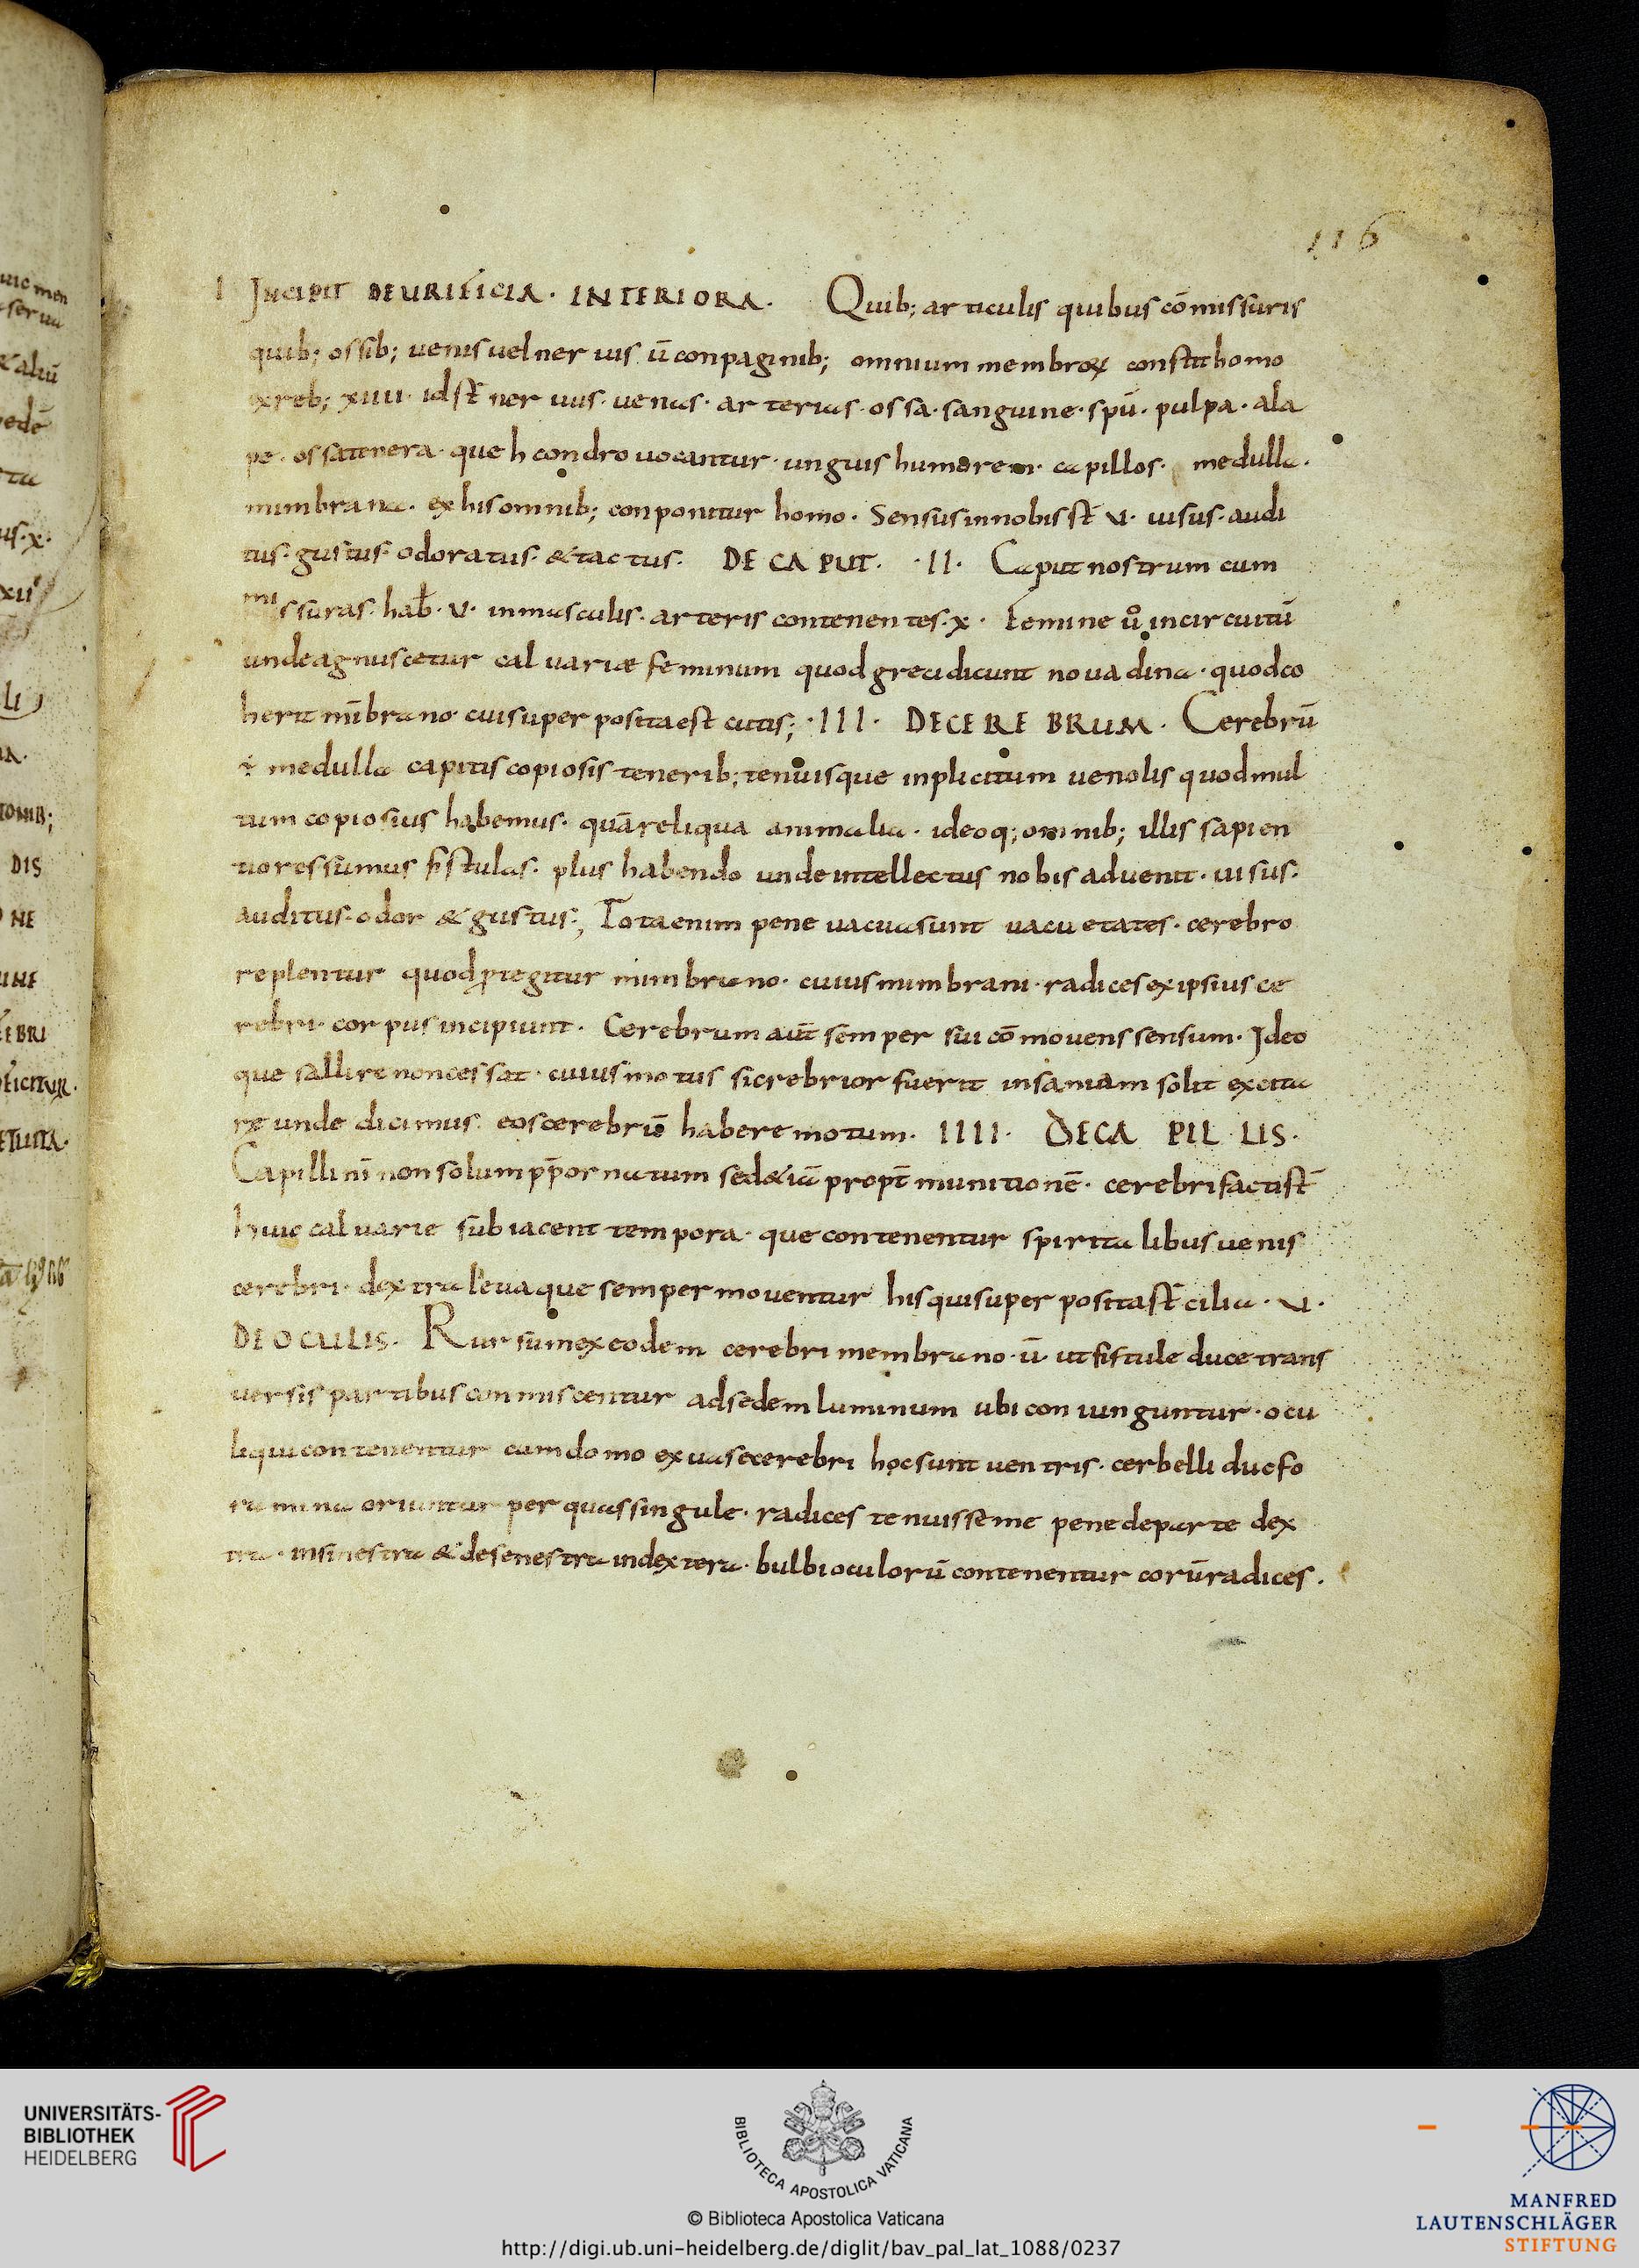 116
I INCIPIT DEURIFICIA · INTERIORA · Quib; articulis quibus cōmissuris
quib; ossib; uenis uel neruis ū conpaginib; omnium membroꝝ constat homo
ex reb; xiiii · id st̄ neruus · uenas · arterias · ossa · sanguine · spū · pulpa · ala
pe · ossa tenera · que h condro uocantur · unguis humorem · capillos · medulla ·
mimbrana · ex his omnib; conponitur homo · Sensus in nobis st̄ v · uisus · audi
tus · gustus · odoratus · & tactus · DE CAPUT · II · Caput nostrum cum
missuras · hab̄ · v · in musculis · arteris contenentes · x · Femine ů in circuitū
unde agnuscetur caluariæ feminum quod greci dicunt nouadina · quod co
herit mībrano cui super posita est cutis; · III · DE CEREBRUM · Cerebrū
÷ medulla capitis copiosis tenerib; tenuisque inplicitum uenolis quod mul
tum copiosius habemus · quā reliqua animalia · ideoq; omnib; illis sapien
tiores sumus fistulas · plus habendo unde intellectus nobis aduenit · uisus ·
auditus · odor & gustus; Tota enim pene uacua sunt uacuetates · cerebro
replentur quod ꝓtegitur mimbrano · cuius mimbrani · radices ex ipsius ce
rebri · corpus incipiunt · Cerebrum aut̄ semper sui cō mouens sensum · Ideo
que sallire non cessat · cuius motus si crebrior fuerit insaniam solit excita
re unde dicimus eos cerebriō habere motum · IIII · DE CAPILLIS ·
Capilli nī non solum pp̄ ornatum sed & iā propt̄ munitionē · cerebri facti st̄
huic caluarie subiacent tempora · que contenentur spiritalibus uenis
cerebri · dextra leuaque semper mouentur his qui super posita st̄ cilia · v ·
DE OCULIS · Rursum ex eodem cerebri membrano · ū · ut fistule duce trans
uersis partibus conmiscentur ad sedem luminum ubi coniunguntur · ocu
li qui contenentur cum domo ex uase cerebri hoc sunt uentris · cerbelli duo fo
ramina oriuntur per quas singule · radices tenuisseme pene de parte dex
tra · in sinestra & de senestra in dextera · bulbi oculorū contenentur eorū radices ·
UNIVERSITÄTS-
BIBLIOTHEK
HEIDELBERG
BIBLIOTECA APOSTOLICA VATICANA
© Biblioteca Apostolica Vaticana
http://digi.ub.uni-heidelberg.de/diglit/bav_pal_lat_1088/0237
MANFRED
LAUTENSCHLÄGER
STIFTUNG